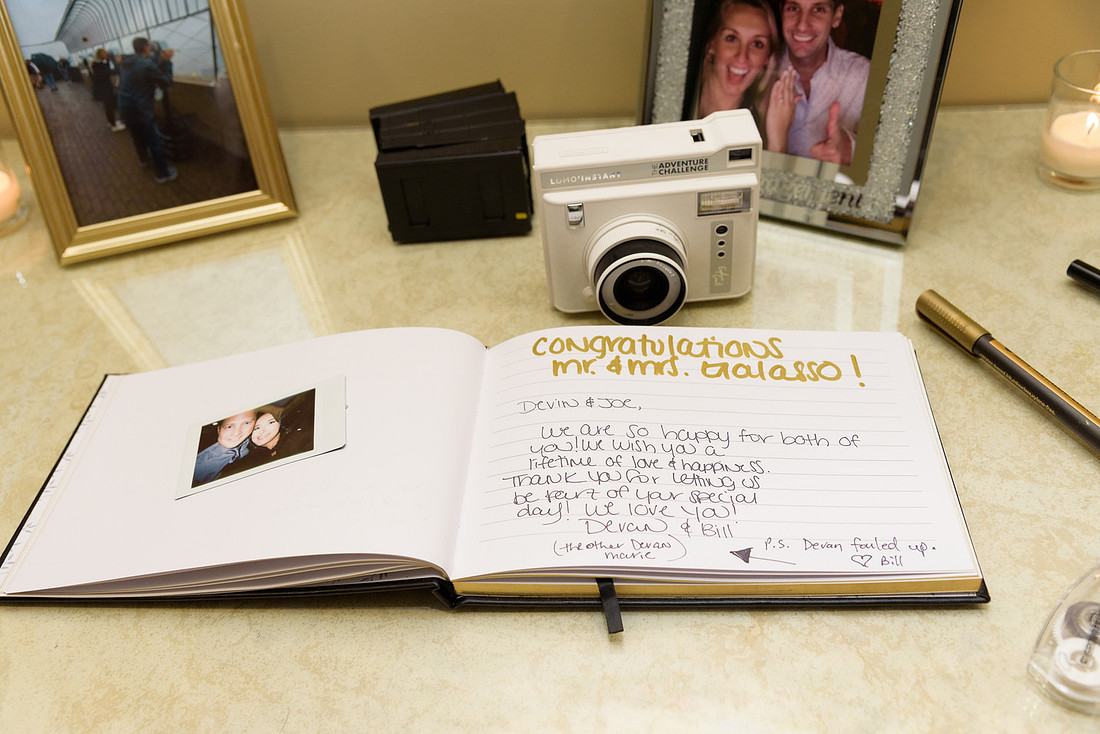 LOMO'INSTANT
THE ADVENTURE
CHALLENGE
congratulations
mr. & mrs. Galasso!
Devin & Joe,
We are so happy for both of
you! We wish you a
lifetime of love & happiness.
Thank you for letting us
be part of your special
day! We love you!
Devan & Bill
(the other Devan
marie)
P.S. Devan fouled up.
♡ Bill